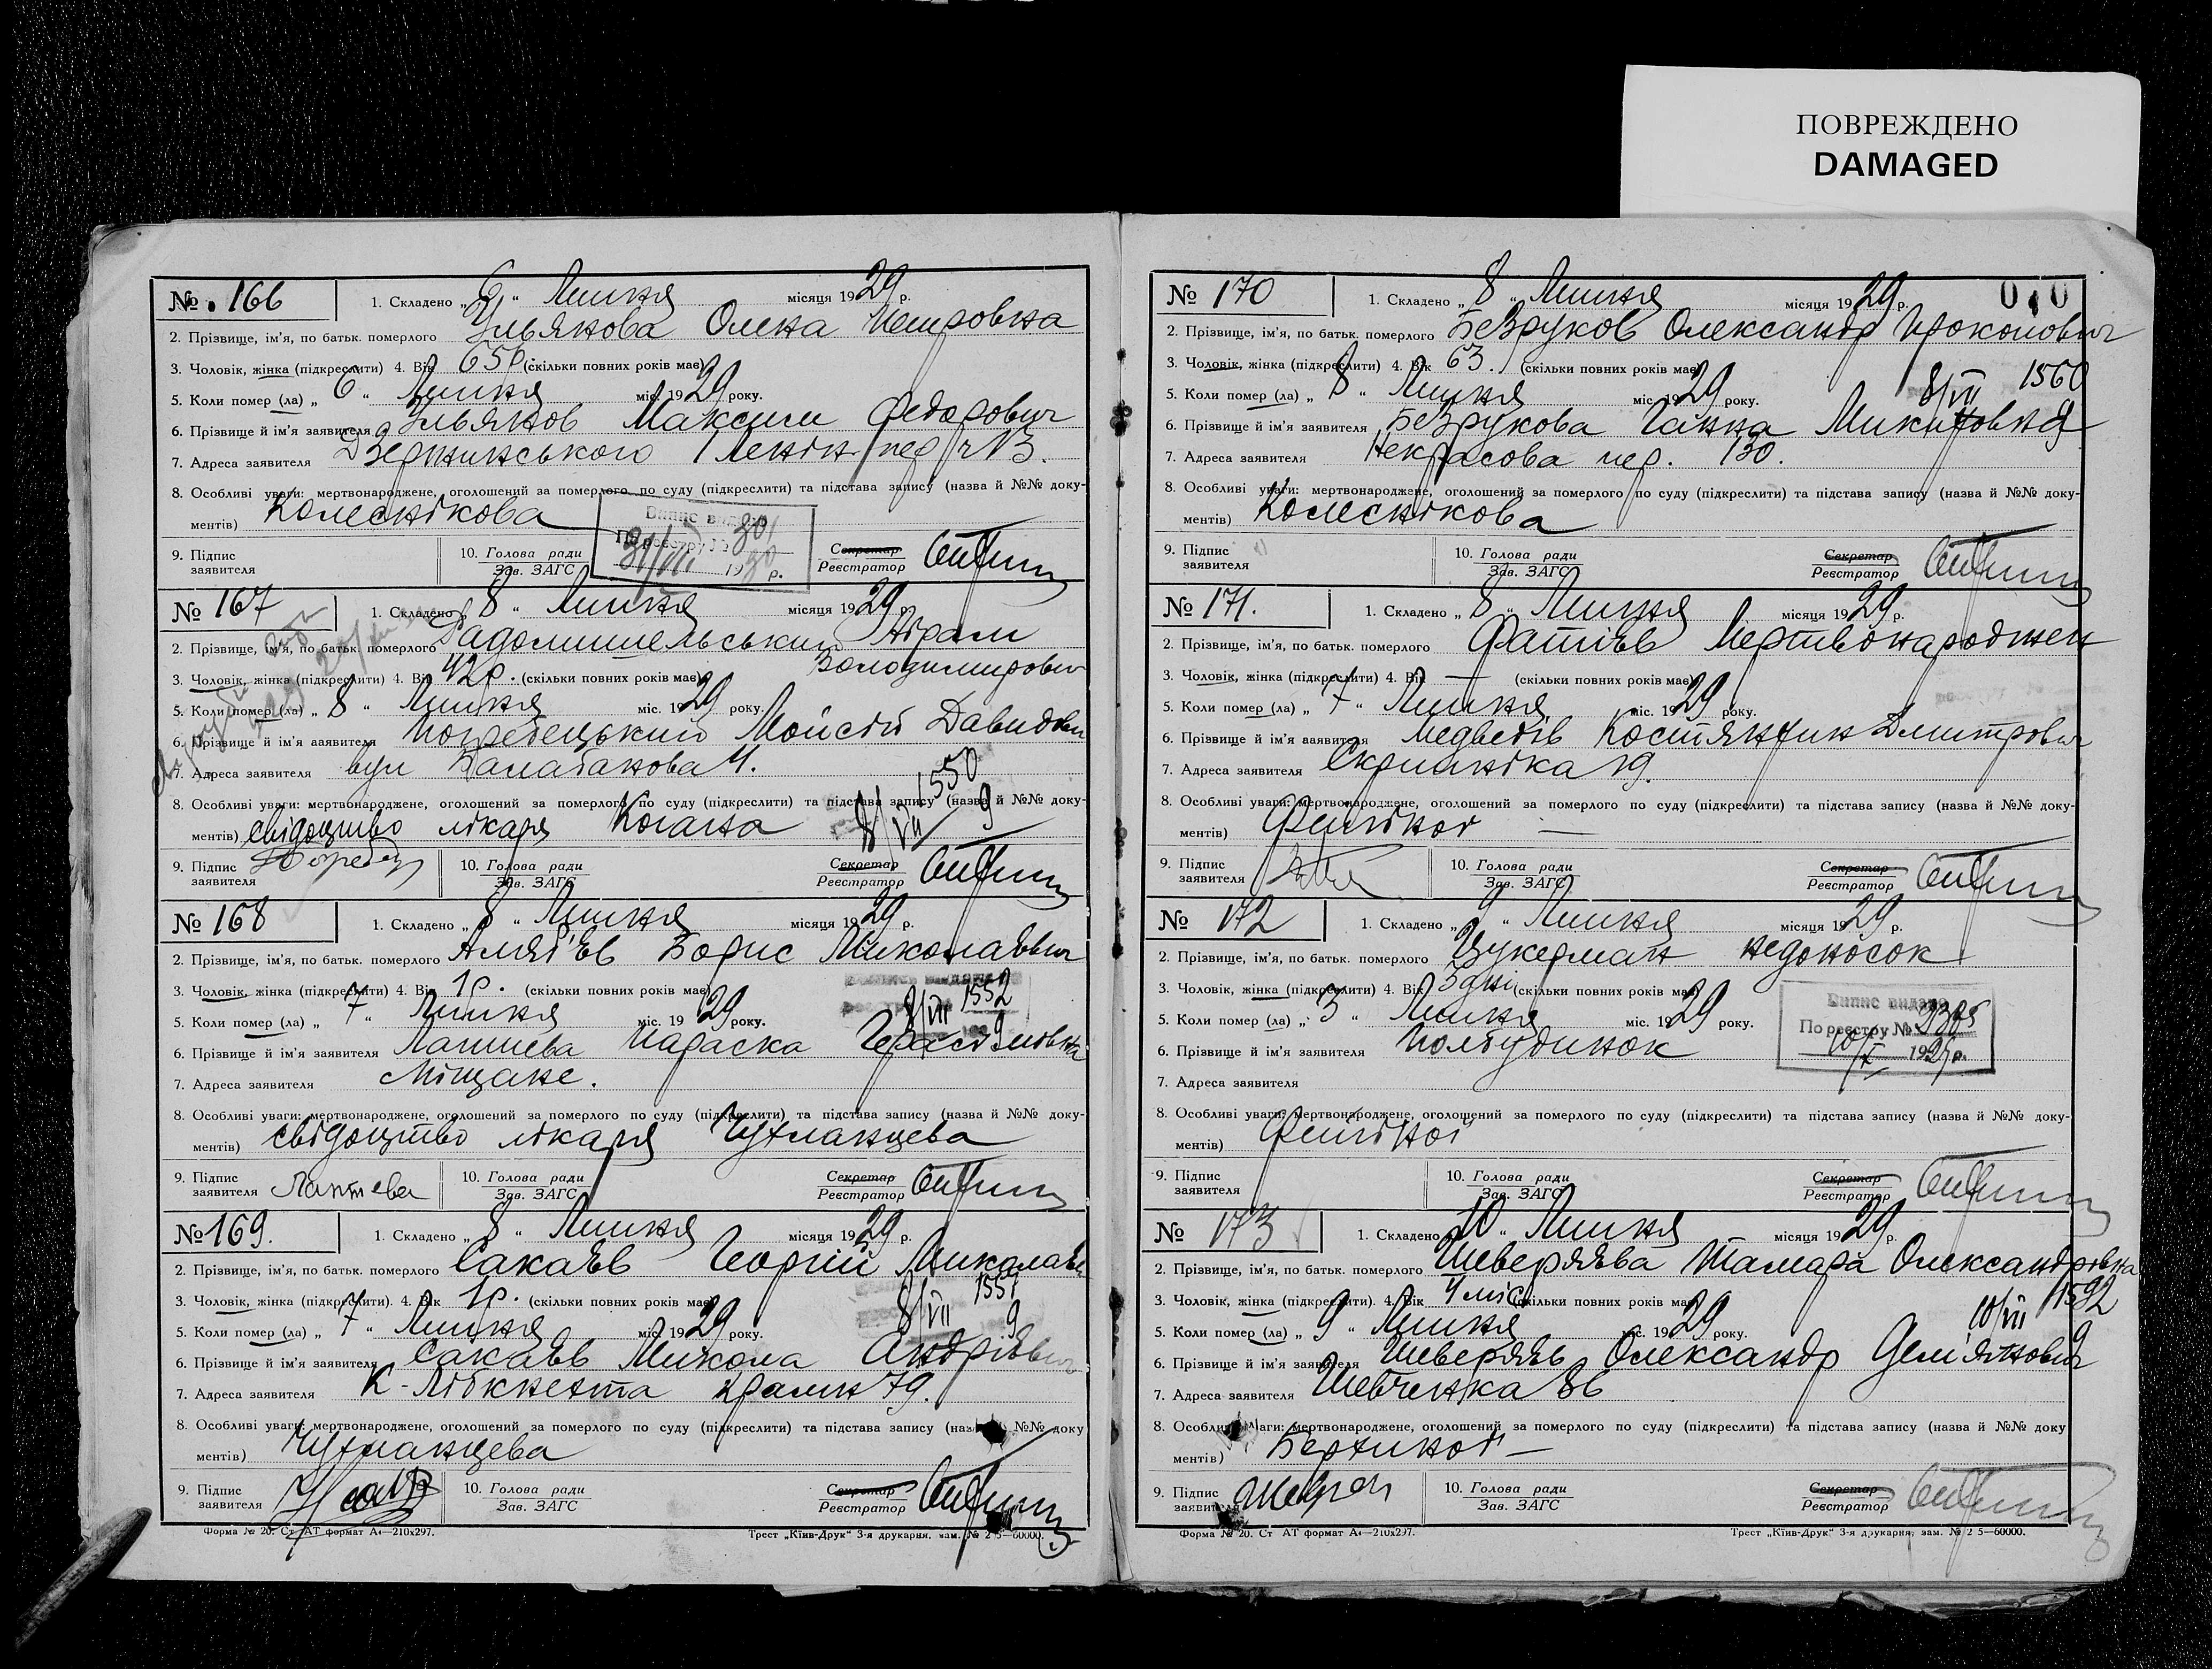 ПОВРЕЖДЕНО
DAMAGED
№ 166 1. Складено „ 6 “ Липня місяця 1929 р.
2. Прізвище, ім'я, по батьк. померлого Ульянова Олена Петровна
3. Чоловік, жінка (підкреслити) 4. Вік 65 (скільки повних років має)
5. Коли помер (ла) „ 6 “ Липня міс. 1929 року.
6. Прізвище й ім'я заявителя Ульянов Максим Федорович
7. Адреса заявителя Дзержинського
8. Особливі уваги: мертвонароджене, оголошений за померлого по суду (підкреслити) та підстава запису (назва й №№ доку-
ментів) Колеснікова
Випис видано
По реєстру № 301
31/VII 1930 р.
9. Підпис заявителя 10. Голова ради Зав. ЗАГС Секретар Реєстратор
№ 167 1. Складено „ 8 “ Липня місяця 1929 р.
2. Прізвище, ім'я, по батьк. померлого Радомишельський Абрам
Володимирович
3. Чоловік, жінка (підкреслити) 4. Вік 42 р. (скільки повних років має)
5. Коли помер (ла) „ 8 “ Липня міс. 1929 року.
6. Прізвище й ім'я заявителя Погребецький Мойсій Давидович
7. Адреса заявителя вул
1550
8. Особливі уваги: мертвонароджене, оголошений за померлого по суду (підкреслити) та підстава запису (назва й №№ доку-
ментів) свідоцтво лікаря Когана 8/VII 9
9. Підпис заявителя 10. Голова ради Зав. ЗАГС Секретар Реєстратор
№ 168 1. Складено „ 8 “ Липня місяця 1929 р.
2. Прізвище, ім'я, по батьк. померлого Борис Миколаєвич
3. Чоловік, жінка (підкреслити) 4. Вік 1 р. (скільки повних років має)
8/VII 1552
5. Коли помер (ла) „ 7 “ Липня міс. 1929 року. 9
6. Прізвище й ім'я заявителя Лаптєва Параска Герасімовна
7. Адреса заявителя Міщане.
8. Особливі уваги: мертвонароджене, оголошений за померлого по суду (підкреслити) та підстава запису (назва й №№ доку-
ментів) свідоцтво лікаря Чухланцева
9. Підпис заявителя Лаптева 10. Голова ради Зав. ЗАГС Секретар Реєстратор
№ 169. 1. Складено „ 8 “ Липня місяця 1929 р.
2. Прізвище, ім'я, по батьк. померлого Сакаєв Георгій
3. Чоловік, жінка (підкреслити). 4. Вік 1 р. (скільки повних років має)
8/VII 1551
5. Коли помер (ла) „ 7 “ Липня міс. 1929 року. 9
6. Прізвище й ім'я заявителя Сакаєв Микола Андрієвич
7. Адреса заявителя К-Лібкнехта 79.
8. Особливі уваги: мертвонароджене, оголошений за померлого по суду (підкреслити) та підстава запису №№ доку
ментів) Чухланцева
9. Підпис заявителя 10. Голова ради Зав. ЗАГС Секретар Реєстратор
Форма № 20. Ст АТ формат А4—210х297. Трест „Київ-Друк“ 3-я друкарня,
№ 170 1. Складено „ 8 “ Липня місяця 1929 р.
2. Прізвище, ім'я, по батьк. померлого Безруков Олександр Прокопович
3. Чоловік, жінка (підкреслити) 4. Вік 63. (скільки повних років має)
8/VII 1560
5. Коли помер (ла) „ 8 “ Липня міс. 1929 року.
6. Прізвище й ім'я заявителя Безрукова Ганна Микитовна
7. Адреса заявителя Некрасова пер. 130.
8. Особливі уваги: мертвонароджене, оголошений за померлого по суду (підкреслити) та підстава запису (назва й №№ доку-
ментів) Колеснікова
9. Підпис заявителя 10. Голова ради Зав. ЗАГС Секретар Реєстратор
№ 171. 1. Складено „ 8 “ Липня місяця 1929 р.
2. Прізвище, ім'я, по батьк. померлого Фатієв Мертвонароджен
3. Чоловік, жінка (підкреслити) 4. Вік — (скільки повних років має)
5. Коли помер (ла) „ 7 “ Липня міс. 1929 року.
6. Прізвище й ім'я заявителя Медведів Костянтин Дмитрович
7. Адреса заявителя Скрипніка 19.
8. Особливі уваги: мертвонароджене, оголошений за померлого по суду (підкреслити) та підстава запису (назва й №№ доку-
ментів)
9. Підпис заявителя 10. Голова ради Зав. ЗАГС Секретар Реєстратор
№ 172 1. Складено „ 9 “ Липня місяця 1929 р.
2. Прізвище, ім'я, по батьк. померлого Цукерман недоносок
3. Чоловік, жінка (підкреслити) 4. Вік 3 дні (скільки повних років має)
5. Коли помер (ла) „ 3 “ Липня міс. 1929 року.
Випис видано
По реєстру №
10/X 1929 р.
6. Прізвище й ім'я заявителя Полбудинок
7. Адреса заявителя
8. Особливі уваги: мертвонароджене, оголошений за померлого по суду (підкреслити) та підстава запису (назва й №№ доку-
ментів)
9. Підпис заявителя 10. Голова ради Зав. ЗАГС Секретар Реєстратор
№ 173 1. Складено „ 10 “ Липня місяця 1929 р.
2. Прізвище, ім'я, по батьк. померлого Шеверяєва Тамара Олександровна
3. Чоловік, жінка (підкреслити). 4. Вік 4 міс. (скільки повних років має)
10/VII 1592
5. Коли помер (ла) „ 9 “ Липня міс. 1929 року. 9
6. Прізвище й ім'я заявителя Шеверяєв Олександр Дем'янович
7. Адреса заявителя Шевченка 86
8. Особливі уваги: мертвонароджене, оголошений за померлого по суду (підкреслити) та підстава запису (назва й №№ доку
ментів)
9. Підпис заявителя 10. Голова ради Зав. ЗАГС Секретар Реєстратор
Форма № 20. Ст АТ формат А4—210х297. Трест „Київ-Друк“ 3-я друкарня, зам.